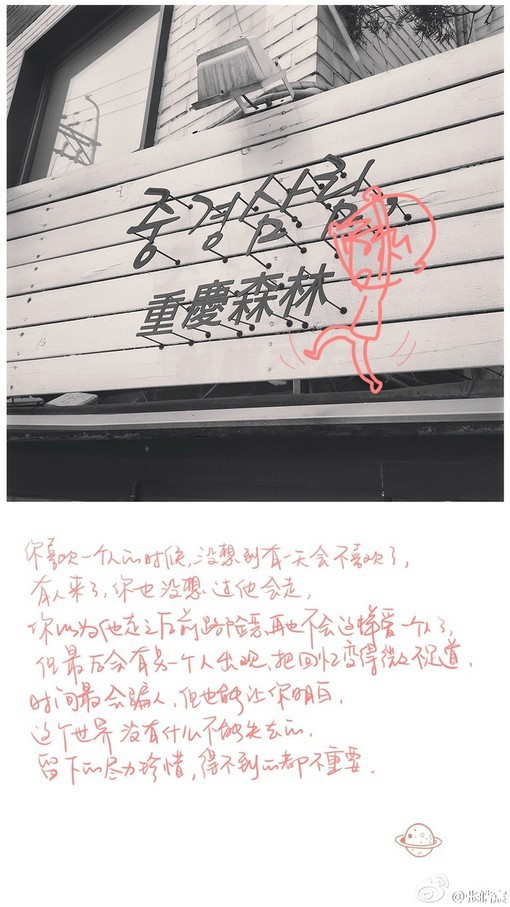 중경삼림
重慶森林
你喜欢一个人的时候,没想到有一天会不喜欢了,
有人来了,你也没想过他会走,
你以为他走之后前路暗的,再也不会这样爱一个人了,
但最后会有另一个人出现,把回忆变得微不足道.
时间最会骗人,但也能让你明白,
这个世界没有什么不能失去的,
留下的尽力珍惜,得不到的都不重要.